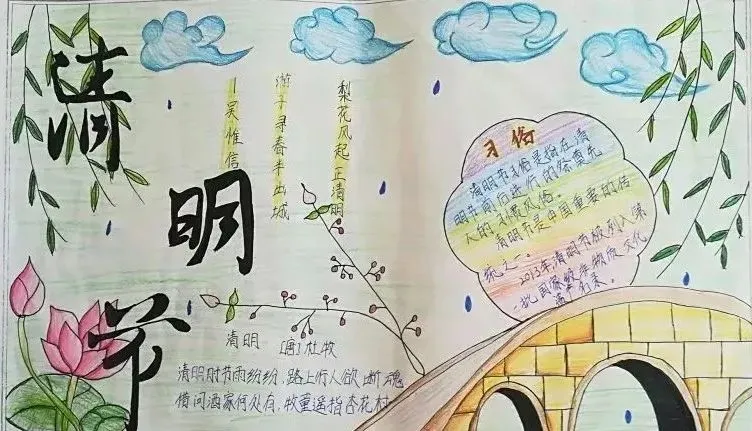 清明节
梨花风起正清明
游子寻春半出城
—吴惟信
习俗
清明节习俗是指在清
明节前后进行的祭奠先
人的习惯风俗。
清明节是中国重要的传
统之一。
2013年清明节被列入第
一批国家级非物质文化
遗产名录。
清明 [唐]杜牧
清明时节雨纷纷,路上行人欲断魂
借问酒家何处有,牧童遥指杏花村